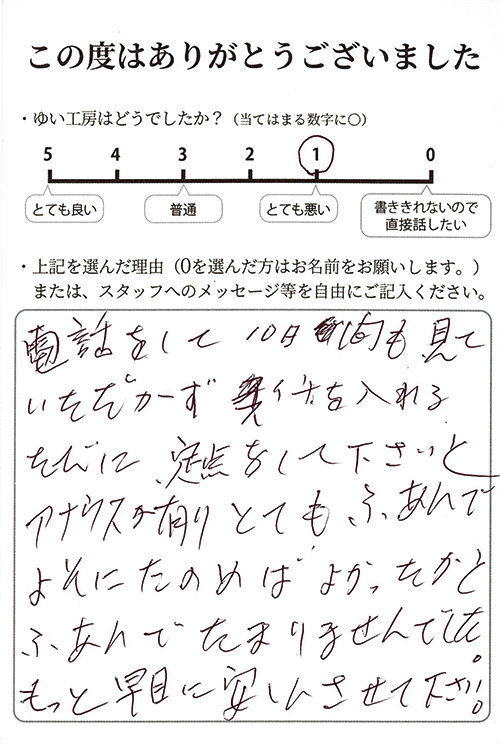 この度はありがとうございました
・ゆい工房はどうでしたか？（当てはまる数字に○）
5 4 3 2 1 0
とても良い 普通 とても悪い 書ききれないので
直接話したい
・上記を選んだ理由（0を選んだ方はお名前をお願いします。）
または、スタッフへのメッセージ等を自由にご記入ください。
電話をして10日間も見て
いただかず を入れる
たびに 点をして下さいと
アナウスが有りとてもふあんで
よそにたのめばよかったかと
ふあんでたまりませんでした。
もっと早目に安しんさせて下さい。